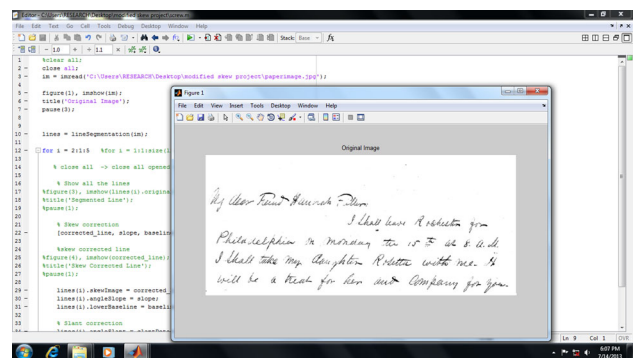 Editor - C:\Users\RESEARCH\Desktop\modified skew project\screw.m
File Edit Text Go Cell Tools Debug Desktop Window Help
Stack: Base fx
- 1.0 + ÷ 1.1 ×
1 %clear all;
2 - close all;
3 - im = imread('C:\Users\RESEARCH\Desktop\modified skew project\paperimage.jpg');
4
5 - figure(1), imshow(im);
6 - title('Original Image');
7 - pause(3);
8
9
10 - lines = lineSegmentation(im);
11
12 - for i = 2:1:5 %for i = 1:1:size(l
13
14 % close all -> close all opened
15
16 % Show all the lines
17 %figure(3), imshow(lines(i).origina
18 %title('Segmented Line');
19 %pause(1);
20
21 % Skew correction
22 - [corrected_line, slope, baselin
23
24 %skew corrected line
25 %figure(4), imshow(corrected_line);
26 %title('Skew Corrected Line');
27 %pause(1);
28
29 - lines(i).skewImage = corrected_
30 - lines(i).angleSlope = slope;
31 - lines(i).lowerBaseline = baseli
32
33 % Slant correction
Figure 1
File Edit View Insert Tools Desktop Window Help
Original Image
My Dear Friend Hannah
I Shall leave Rochester for
Philadelphia on Monday the 15th at 8. a.m.
I Shall take my daughter Rosetta with me. It
will be a treat for her and Company for you.
Ln 9 Col 1 OVR
6:07 PM
7/14/2013